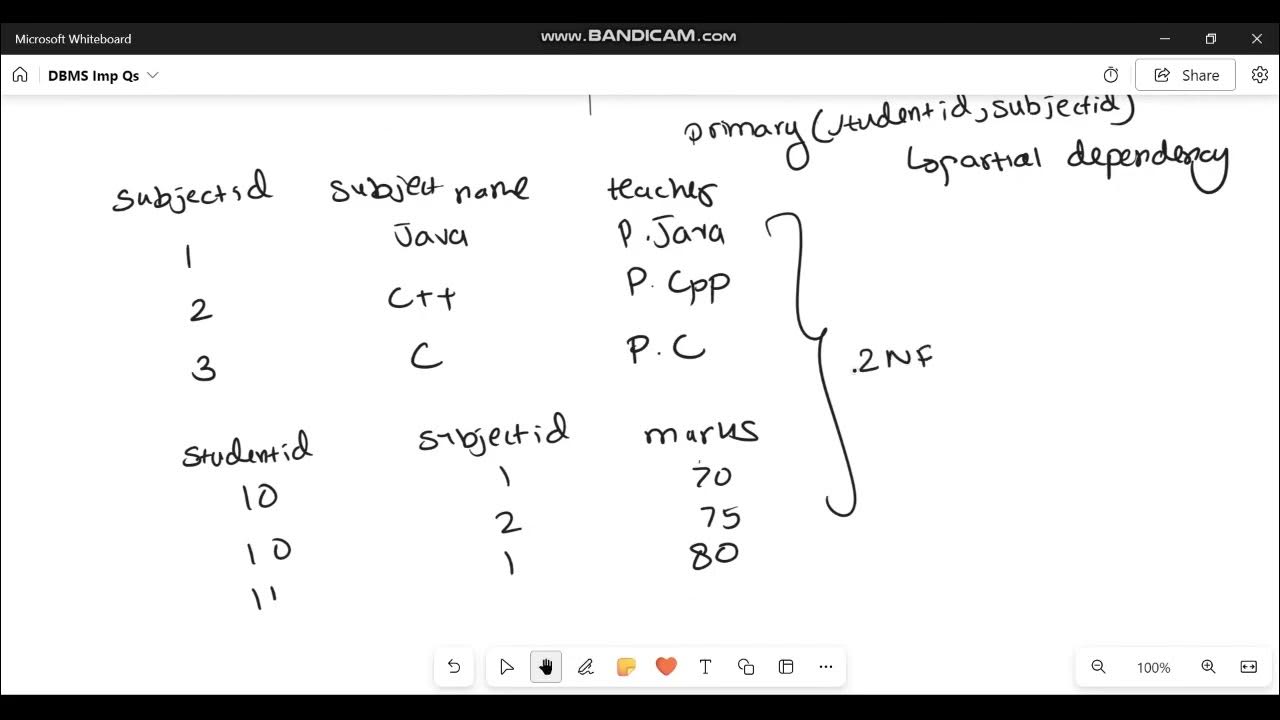 www.BANDICAM.com
Microsoft Whiteboard
DBMS Imp Qs
Share
primary(studentid,subjectid)
partial dependency
subjectid subject name teacher
1 Java P.Java
2 C++ P.Cpp
3 C P.C
.2NF
studentid subjectid marks
10 1 70
10 2 75
11 1 80
100%